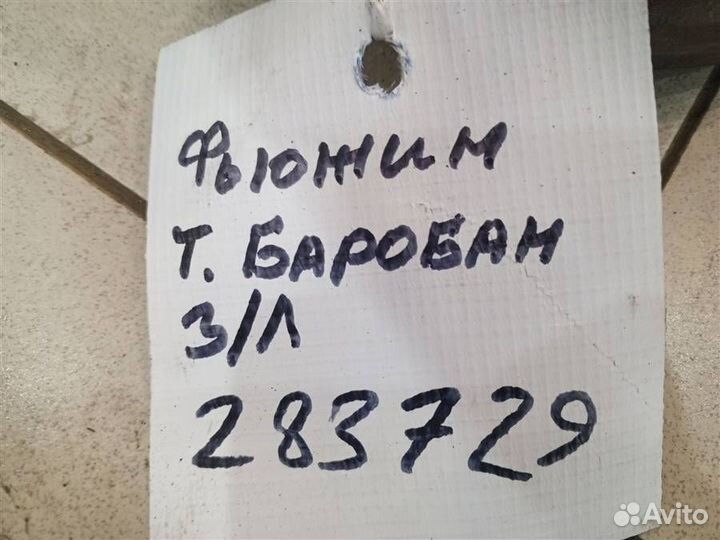 Фьюжин
Т. БАРОБАН
З/Л
283729
Avito